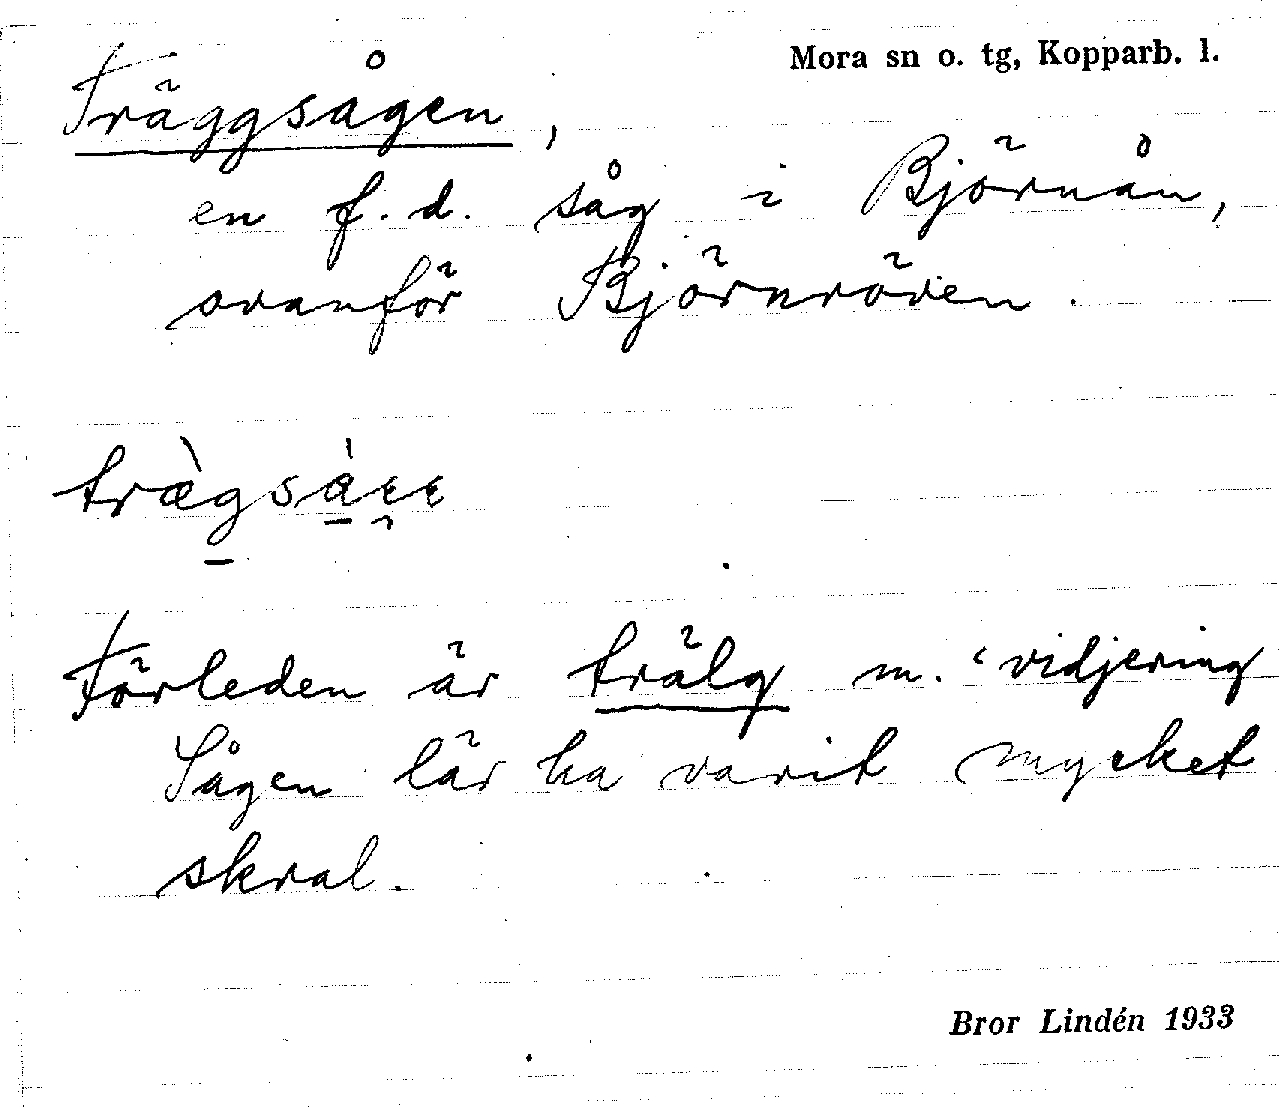 Mora sn o. tg, Kopparb. l.
Träggsågen,
en f.d. såg i Björnån,
ovanför Björnröven.
Förleden är trälg m. ‘vidjering
Sågen lär ha varit mycket
skral.
Bror Lindén 1933